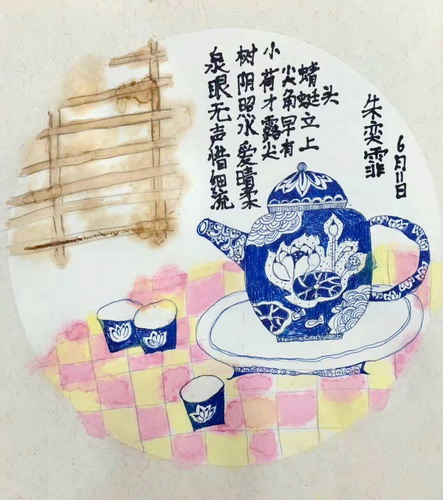 泉眼无声惜细流
树阴照水爱晴柔
小荷才露尖
尖角早有
蜻蜓立上
头
朱奕霏
6月11日